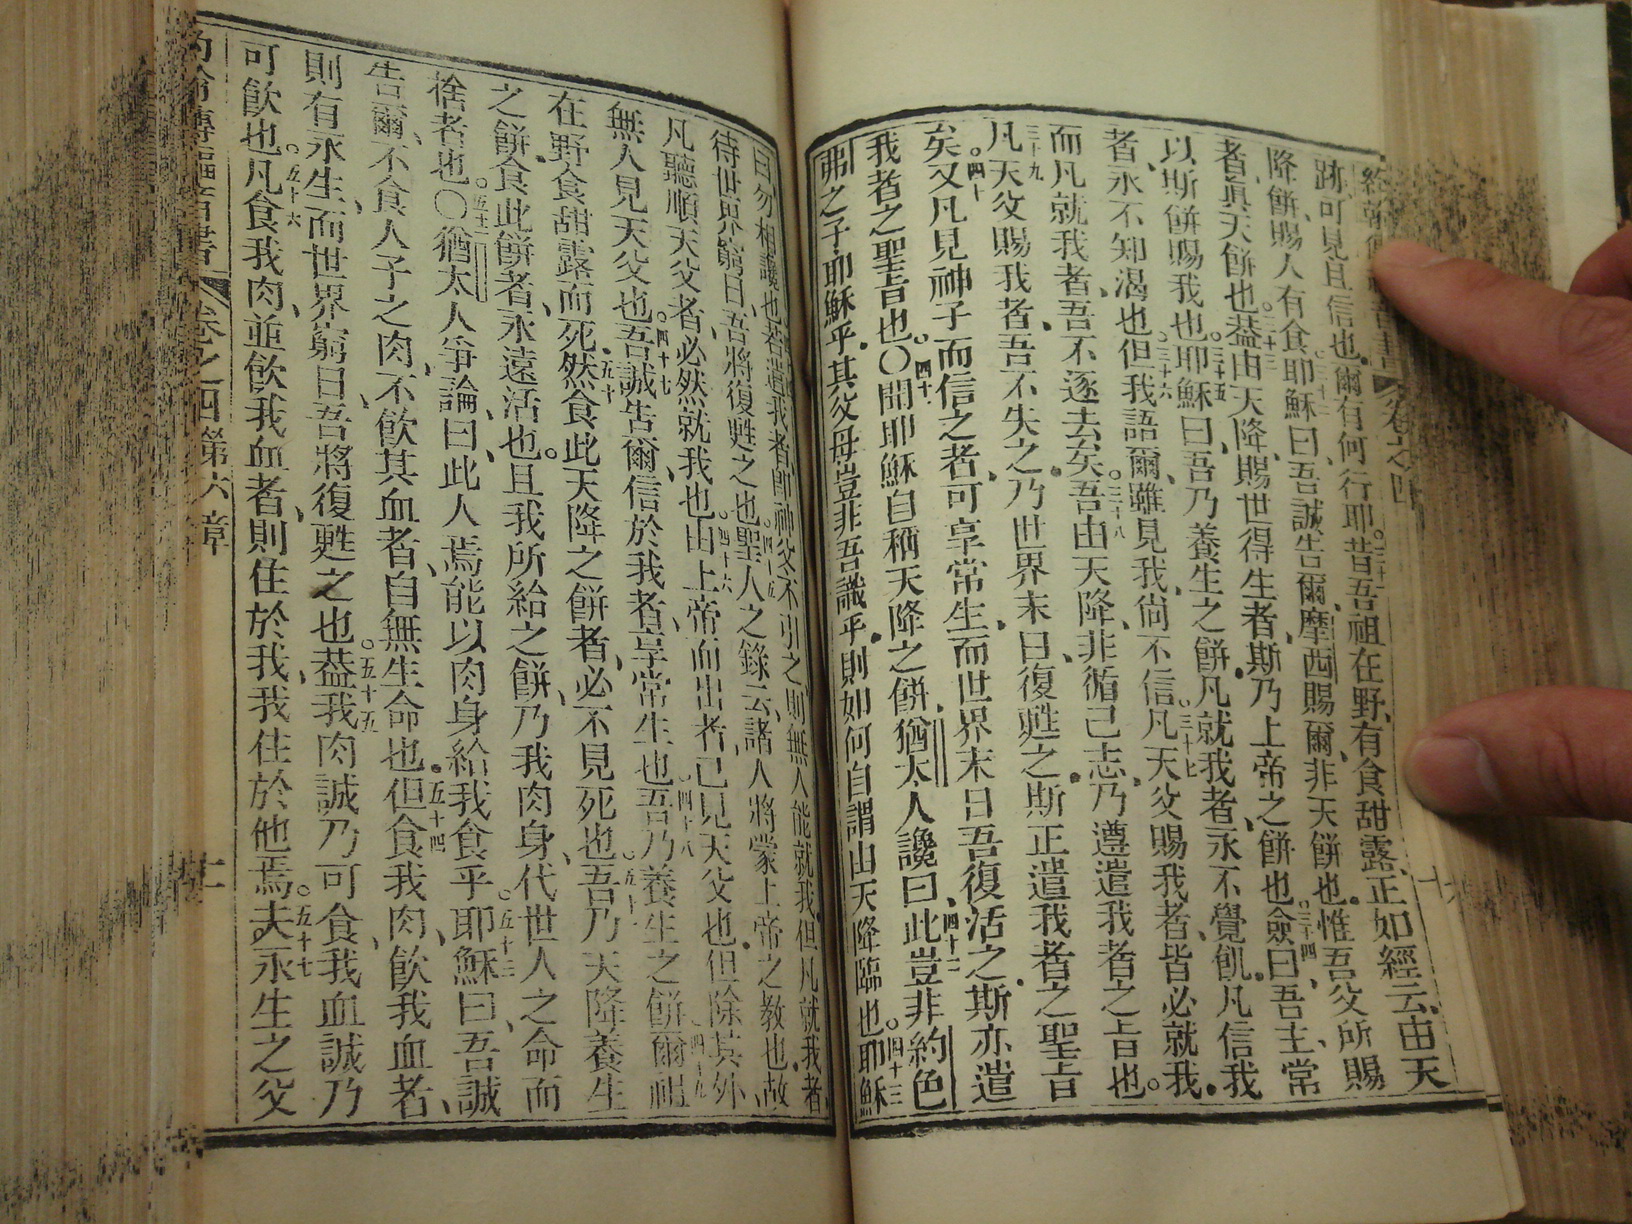 約翰 卷之四
跡、可見且信也。爾有何行耶。三十一昔吾祖在野、有食甜露、正如經云、由天
降餅、賜人有食。三十二耶穌曰、吾誠告爾、摩西賜爾、非天餅也。惟吾父所賜
者、真天餅也。三十三蓋由天降、賜世得生者、斯乃上帝之餅也。三十四僉曰、吾主、常
以斯餅賜我也。三十五耶穌曰、吾乃養生之餅。凡就我者、永不覺飢。凡信我
者、永不知渴也。三十六但我語爾、雖見我、尚不信。三十七凡天父賜我者、皆必就我。
而凡就我者、吾不逐去矣。三十八吾由天降、非循己志、乃遵遣我者之旨也。
三十九凡天父賜我者、吾不失之。乃世界末日、復甦之。斯正遣我者之聖旨
矣。四十又凡見神子而信之者、可享常生、而世界末日吾復活之。斯亦遣
我者之聖旨也。〇四十一聞耶穌自稱天降之餅、猶太人讒曰、四十二此豈非約色
弗之子耶穌乎。其父母豈非吾識乎。則如何自謂由天降臨也。四十三耶穌
曰、勿相譏也。若遣我者、卽神父、不引之、則無人能就我、但凡就我者、
待世界窮日、吾將復甦之也。四十五聖人之錄云、諸人將蒙上帝之教也。故
凡聽順天父者、必然就我也。四十六由上帝而出者、已見天父也。但除其外、
無人見天父也。四十七吾誠告爾、信於我者、享常生也。四十八吾乃養生之餅。四十九爾祖
在野食甜露而死。五十然食此天降之餅者、必不見死也。五十一吾乃天降養生
之餅、食此餅者、永遠活也。且我所給之餅、乃我肉身、代世人之命而
捨者也。〇五十二猶太人爭論曰、此人焉能以肉身給我食乎。五十三耶穌曰、吾誠
告爾、不食人子之肉、不飲其血者、自無生命也。五十四但食我肉、飲我血者、
則有永生、而世界窮日、吾將復甦之也。五十五蓋我肉誠乃可食、我血誠乃
可飲也。五十六凡食我肉、並飲我血者、則住於我、我住於他焉。五十七夫永生之父
約翰傳福音書 卷之四 第六章 十一